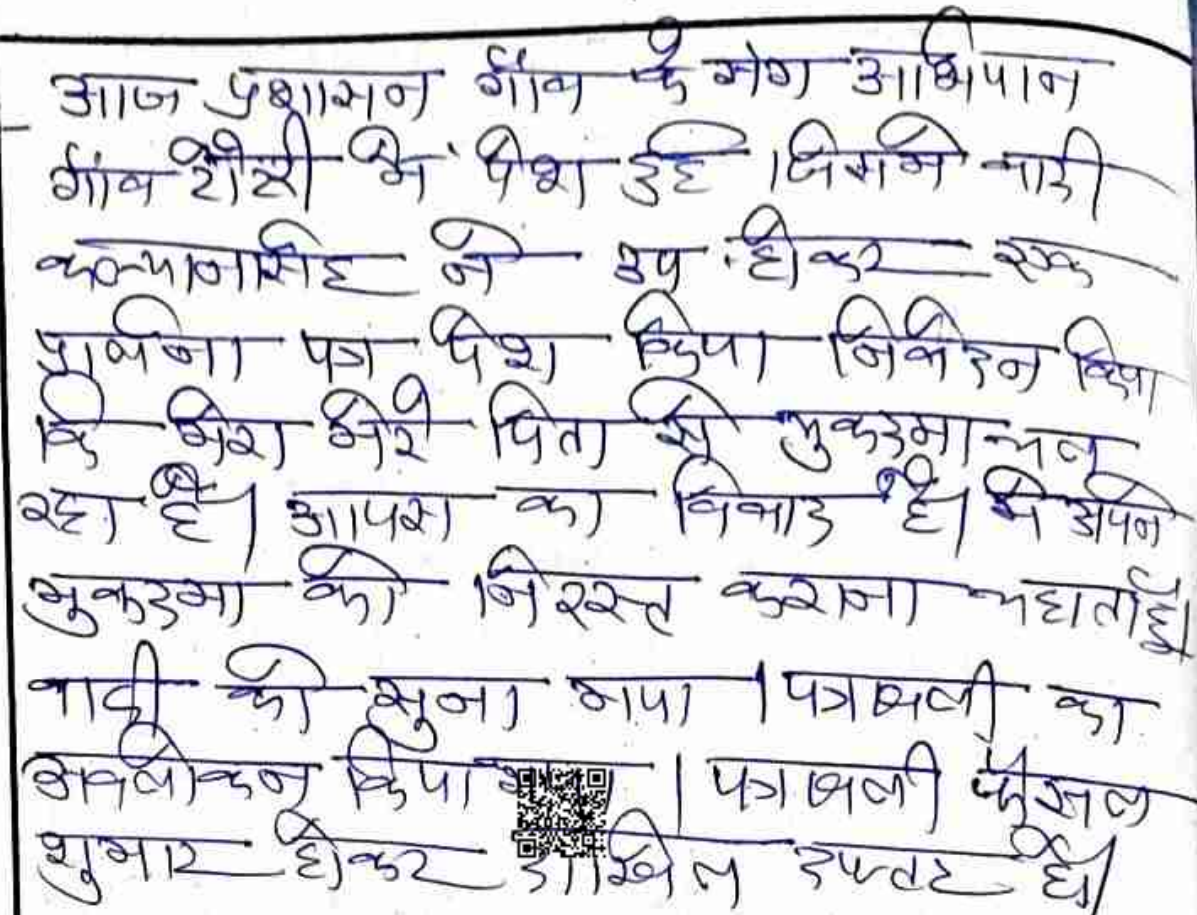 आज प्रशासन गांव के संग अभियान
गांव रोसी में पेश हुई । जिसमें वादी
कल्यानसिंह ने उप. होकर एक
प्रार्थना पत्र पेश किया निवेदन किया
कि मेरा मेरे पिता से मुकदमा चल
रहा है। आपस का विवाद है। मैं अपने
मुकदमा को निरस्त कराना चहाता हूँ।
वादी को सुना गया । पत्रावली का
अवलोकन किया गया । पत्रावली फैसल
शुमार होकर दाखिल दफ्तर हो।